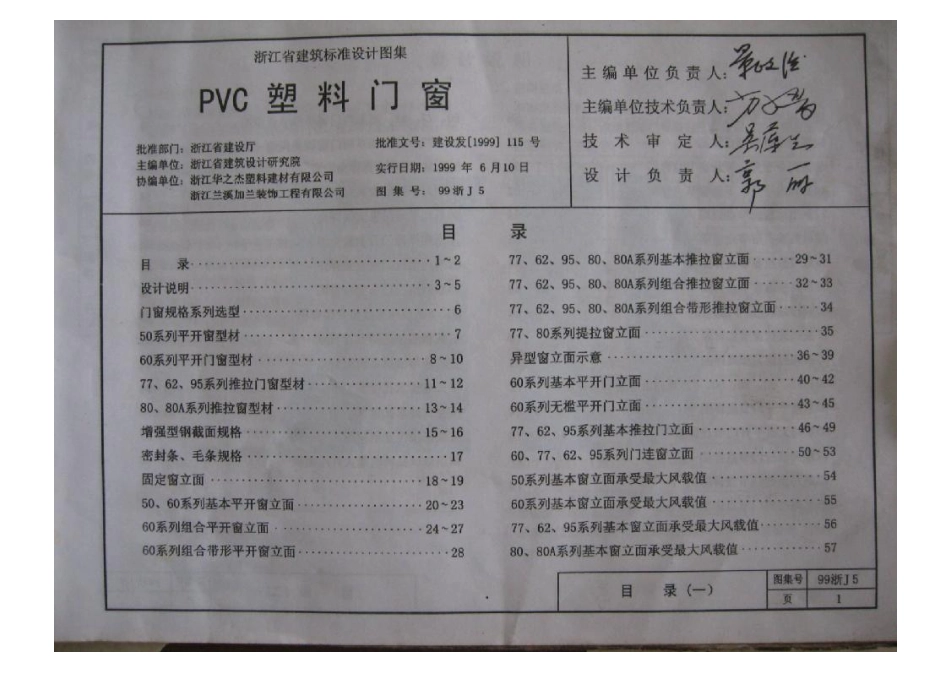 浙江省建筑标准设计图集
PVC 塑料门窗
批准部门：浙江省建设厅
主编单位：浙江省建筑设计研究院
协编单位：浙江华之杰塑料建材有限公司
浙江兰溪加兰装饰工程有限公司
批准文号：建设发[1999] 115 号
实行日期：1999 年 6 月 10 日
图 集 号：99浙J5
主编单位负责人：
主编单位技术负责人：
技术审定人：
设计负责人：
目 录
目 录 1~2
设计说明 3~5
门窗规格系列选型 6
50系列平开窗型材 7
60系列平开门窗型材 8~10
77、62、95系列推拉门窗型材 11~12
80、80A系列推拉窗型材 13~14
增强型钢截面规格 15~16
密封条、毛条规格 17
固定窗立面 18~19
50、60系列基本平开窗立面 20~23
60系列组合平开窗立面 24~27
60系列组合带形平开窗立面 28
77、62、95、80、80A系列基本推拉窗立面 29~31
77、62、95、80、80A系列组合推拉窗立面 32~33
77、62、95、80、80A系列组合带形推拉窗立面 34
77、80系列提拉窗立面 35
异型窗立面示意 36~39
60系列基本平开门立面 40~42
60系列无槛平开门立面 43~45
77、62、95系列基本推拉门立面 46~49
60、77、62、95系列门连窗立面 50~53
50系列基本窗立面承受最大风载值 54
60系列基本窗立面承受最大风载值 55
77、62、95系列基本窗立面承受最大风载值 56
80、80A系列基本窗立面承受最大风载值 57
目 录（一）
图集号 99浙J5
页 1